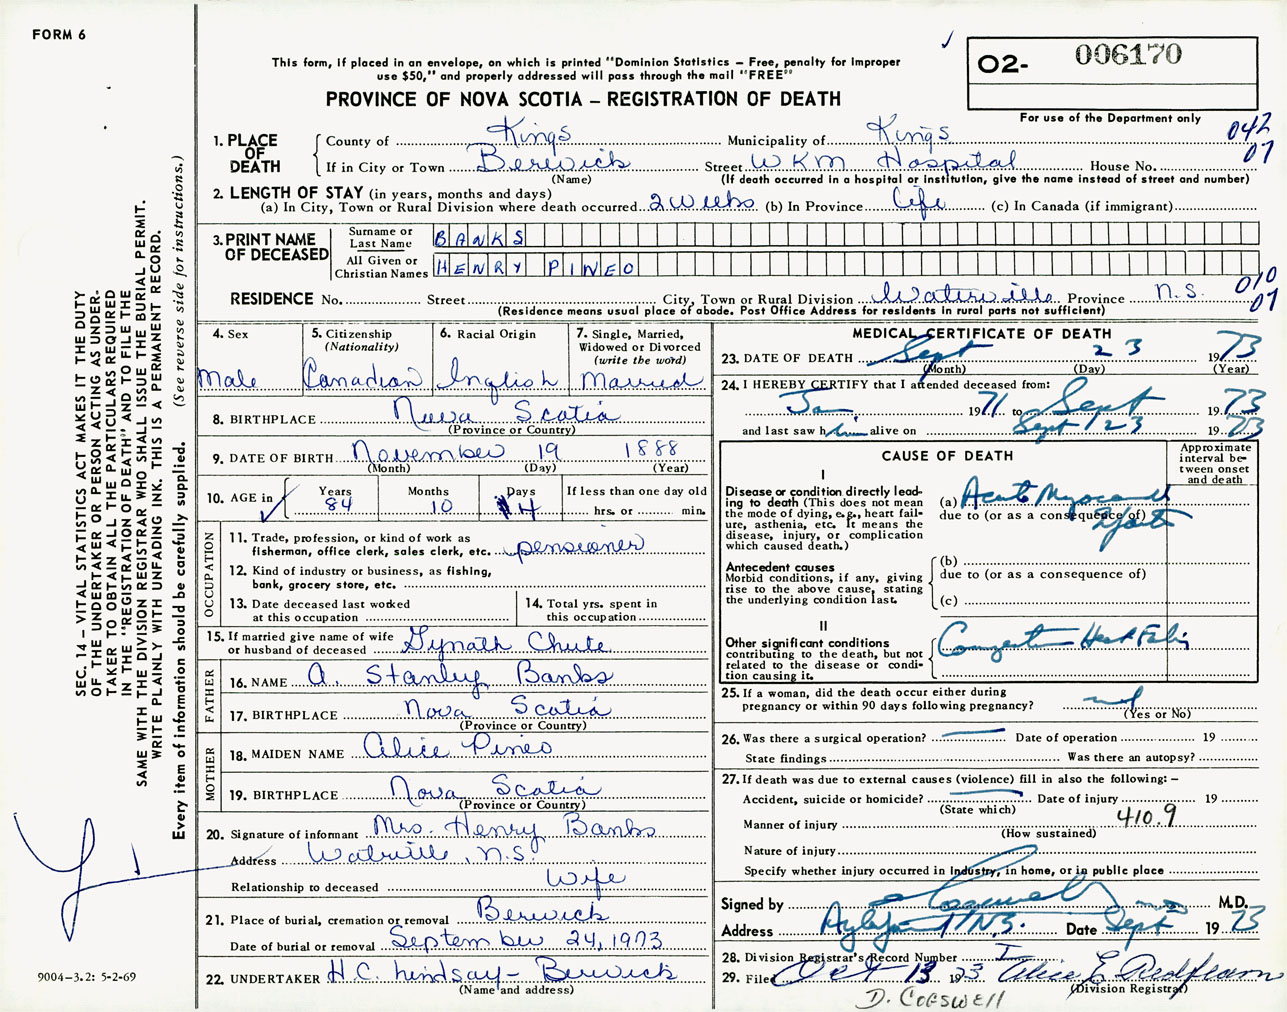 FORM 6
This form, if placed in an envelope, on which is printed "Dominion Statistics – Free, penalty for improper
use $50," and properly addressed will pass through the mail "FREE"
PROVINCE OF NOVA SCOTIA – REGISTRATION OF DEATH
O2- 006170
For use of the Department only
042
07
1. PLACE OF DEATH
County of Kings Municipality of Kings
If in City or Town Berwick Street WKM Hospital House No.
(Name) (If death occurred in a hospital or institution, give the name instead of street and number)
2. LENGTH OF STAY (in years, months and days)
(a) In City, Town or Rural Division where death occurred 2 weeks (b) In Province Life (c) In Canada (if immigrant)
3. PRINT NAME OF DECEASED
Surname or Last Name BANKS
All Given or Christian Names HENRY PINEO
010
07
RESIDENCE No. Street City, Town or Rural Division Waterville Province N.S.
(Residence means usual place of abode. Post Office Address for residents in rural parts not sufficient)
4. Sex
Male
5. Citizenship
(Nationality)
Canadian
6. Racial Origin
Inglish
7. Single, Married,
Widowed or Divorced
(write the word)
Married
8. BIRTHPLACE Nova Scotia
(Province or Country)
9. DATE OF BIRTH November 19 1888
(Month) (Day) (Year)
10. AGE in
Years Months Days If less than one day old
84 10 4 hrs. or min.
OCCUPATION
11. Trade, profession, or kind of work as
fisherman, office clerk, sales clerk, etc. pensioner
12. Kind of industry or business, as fishing,
bank, grocery store, etc.
13. Date deceased last worked
at this occupation
14. Total yrs. spent in
this occupation
15. If married give name of wife
or husband of deceased Gynath Chute
FATHER
16. NAME A. Stanley Banks
17. BIRTHPLACE Nova Scotia
(Province or Country)
MOTHER
18. MAIDEN NAME Alice Pineo
19. BIRTHPLACE Nova Scotia
(Province or Country)
20. Signature of informant Mrs. Henry Banks
Address Watville, N.S.
Relationship to deceased Wife
21. Place of burial, cremation or removal Berwick
Date of burial or removal September 24, 1973
22. UNDERTAKER H.C. Lindsay – Berwick
(Name and address)
MEDICAL CERTIFICATE OF DEATH
23. DATE OF DEATH Sept 23 1973
(Month) (Day) (Year)
24. I HEREBY CERTIFY that I attended deceased from:
Jan. 1971 to Sept 1973
and last saw him alive on Sept 23 1973
CAUSE OF DEATH
Approximate
interval be-
tween onset
and death
I
Disease or condition directly lead-
ing to death (This does not mean
the mode of dying, e.g., heart fail-
ure, asthenia, etc. It means the
disease, injury, or complication
which caused death.)
(a) Acute Myocardial
due to (or as a consequence of)
Antecedent causes
Morbid conditions, if any, giving
rise to the above cause, stating
the underlying condition last.
(b)
due to (or as a consequence of)
(c)
II
Other significant conditions
contributing to the death, but not
related to the disease or condi-
tion causing it.
Congestive Heart Failure
25. If a woman, did the death occur either during
pregnancy or within 90 days following pregnancy?
(Yes or No)
26. Was there a surgical operation? Date of operation 19
State findings Was there an autopsy?
27. If death was due to external causes (violence) fill in also the following: –
Accident, suicide or homicide? Date of injury 19
(State which)
Manner of injury 410.9
(How sustained)
Nature of injury
Specify whether injury occurred in Industry, in home, or in public place
Signed by M.D.
Address Aylesford N.S. Date Sept 1973
28. Division Registrar's Record Number
29. Filed Oct 13 1973 Alice E Redfearn
(Division Registrar)
D. COGSWELL
SEC. 14 – VITAL STATISTICS ACT MAKES IT THE DUTY
OF THE UNDERTAKER OR PERSON ACTING AS UNDER-
TAKER TO OBTAIN ALL THE PARTICULARS REQUIRED
IN THE "REGISTRATION OF DEATH" AND TO FILE THE
SAME WITH THE DIVISION REGISTRAR WHO SHALL ISSUE THE BURIAL PERMIT.
WRITE PLAINLY WITH UNFADING INK. THIS IS A PERMANENT RECORD.
Every item of information should be carefully supplied. (See reverse side for instructions.)
9004–3.2: 5-2-69